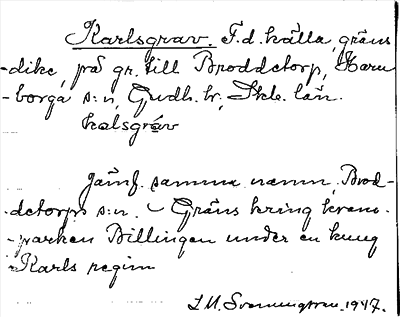 Karlsgrav. F.d. källa, gräns
-dike, på gr. till Broddetorp, Horn
-borga s:n, Gudh. hr, Skb. län.
kalsgrav
Jämf. samma namn, Brod-
-detorps s:n. – Gräns kring krono-
-parken Billingen under en kung
Karls regim
1947.